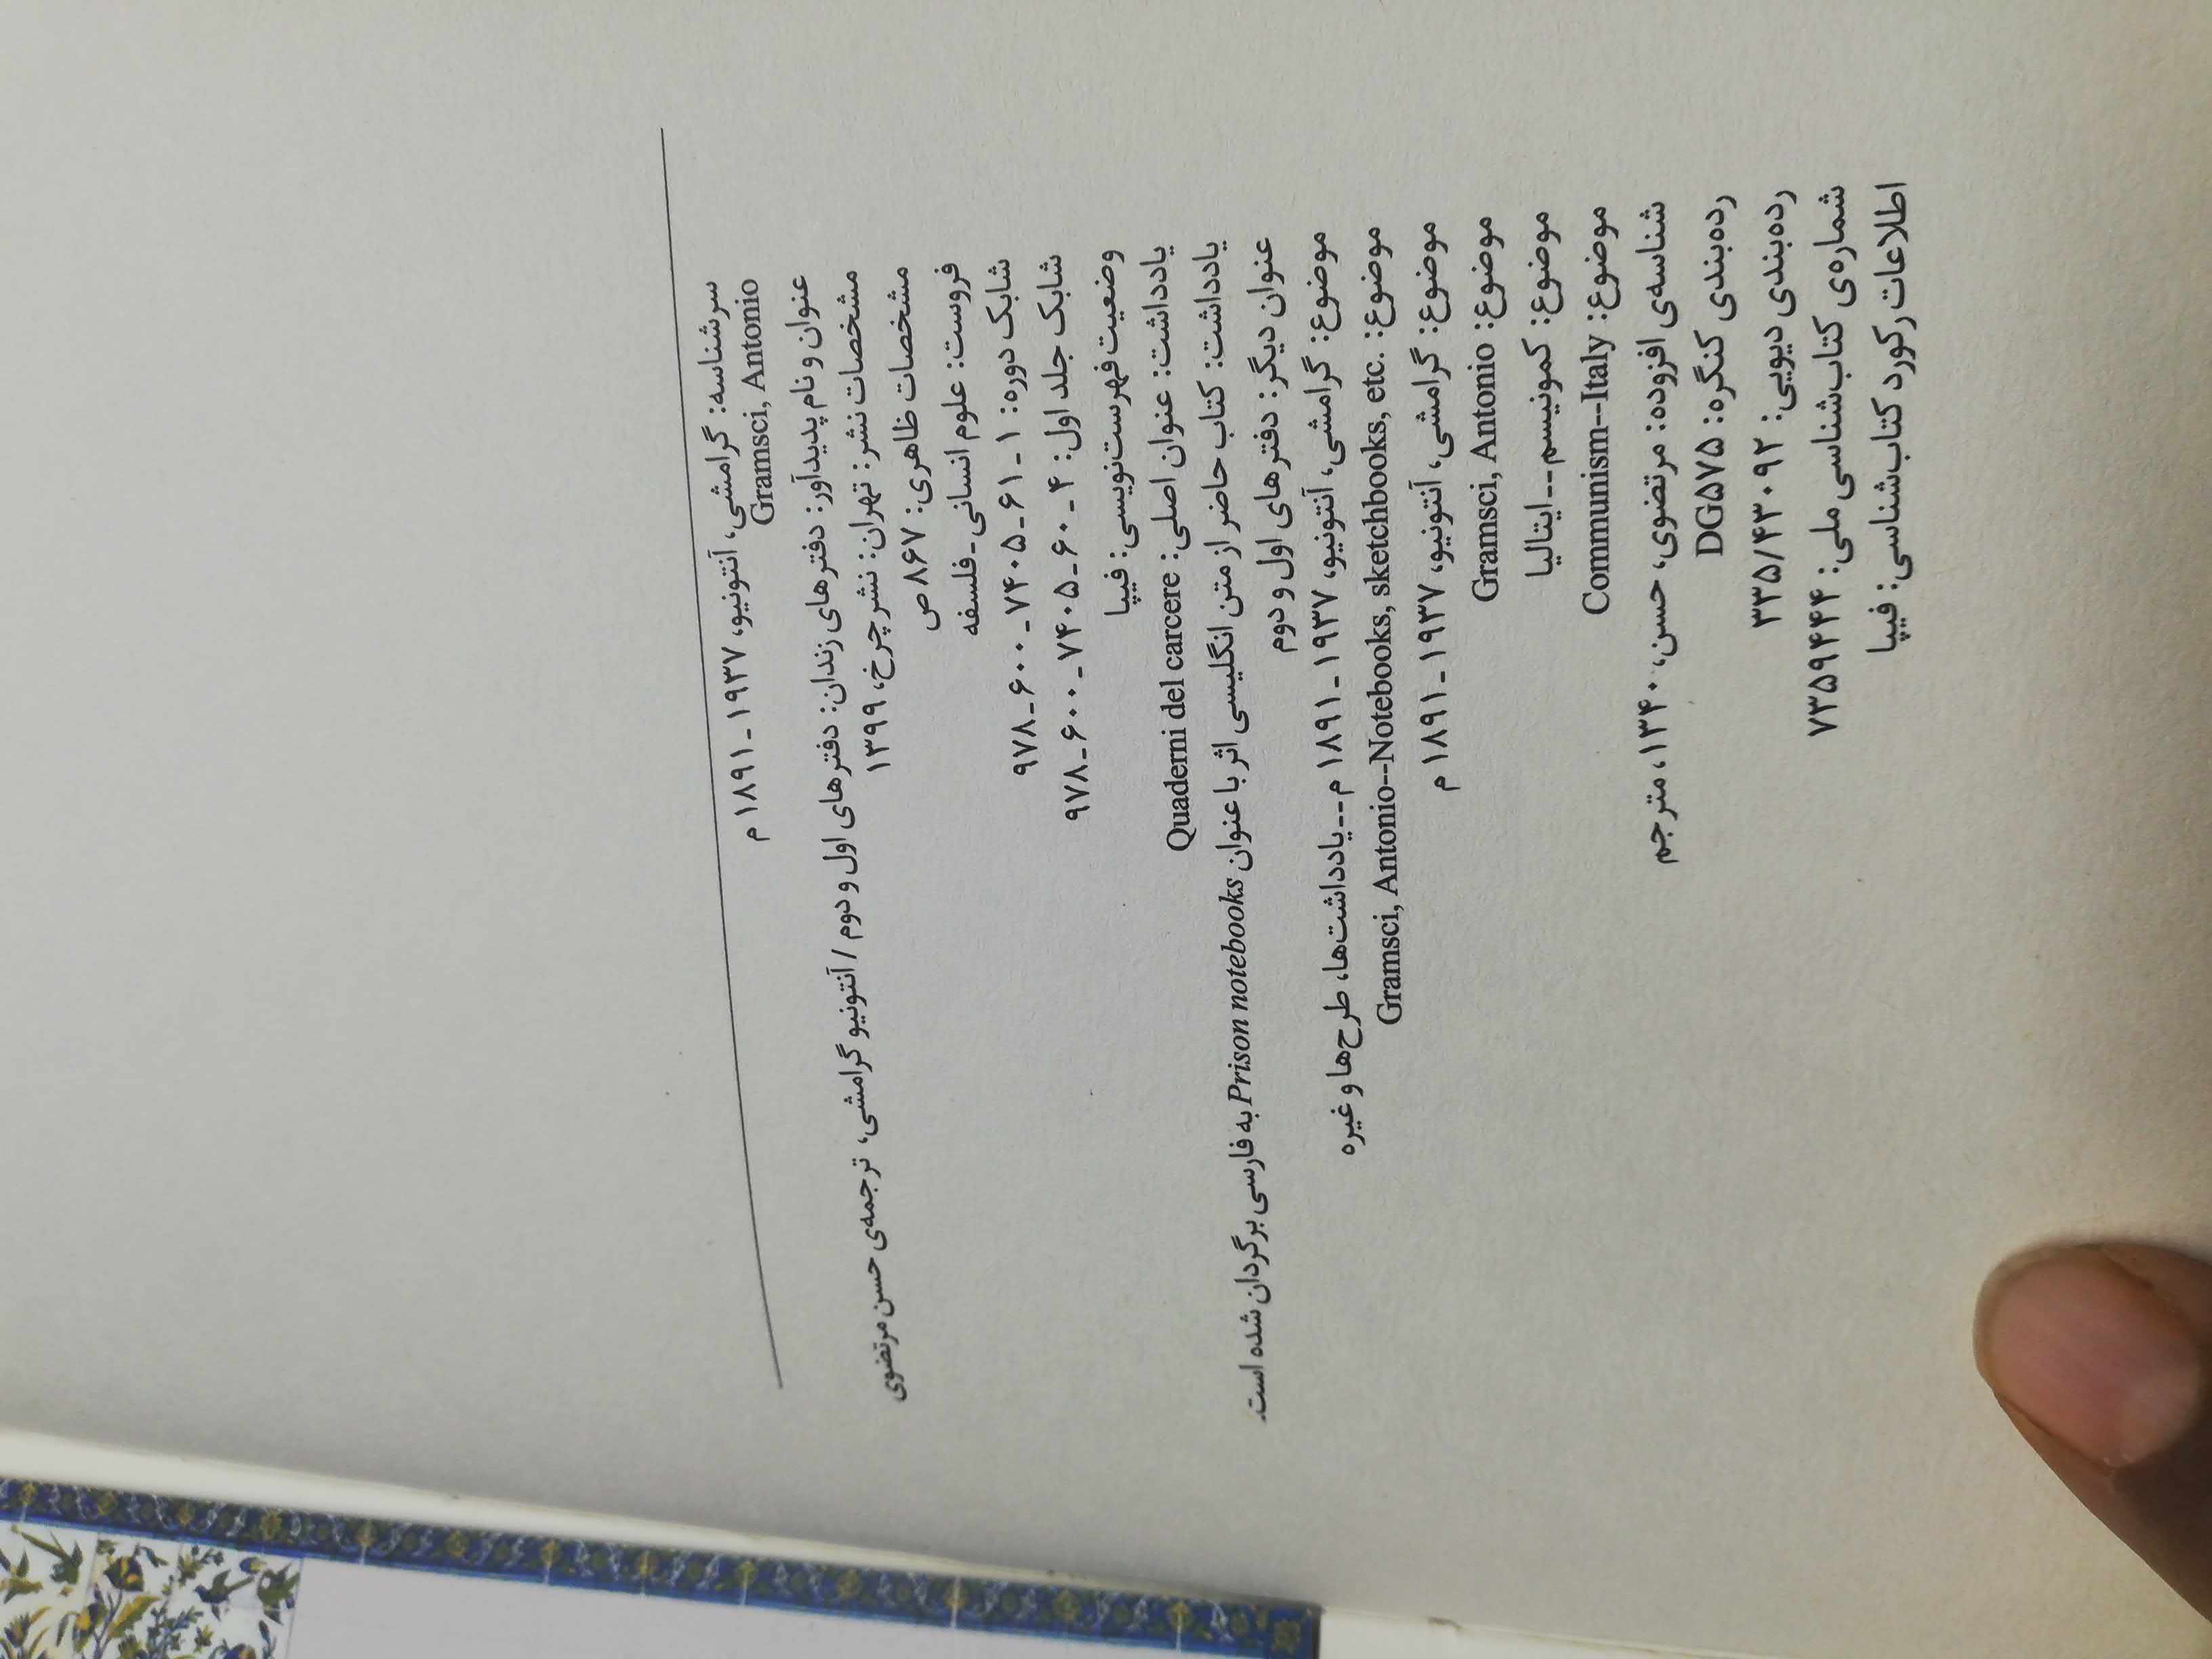 سرشناسه: گرامشی، آنتونیو، ۱۹۳۷-۱۸۹۱ م
Gramsci, Antonio
عنوان و نام پدیدآور: دفترهای زندان: دفترهای اول و دوم / آنتونیو گرامشی، ترجمه‌ی حسن مرتضوی
مشخصات نشر: تهران: نشر چرخ، ۱۳۹۹
مشخصات ظاهری: ۸۶۷ ص
فروست: علوم انسانی-فلسفه
شابک دوره: ۱-۶۱-۷۴۰۵-۶۰۰-۹۷۸
شابک جلد اول: ۴-۶۰-۷۴۰۵-۶۰۰-۹۷۸
وضعیت فهرست‌نویسی: فیپا
یادداشت: عنوان اصلی: Quaderni del carcere
یادداشت: کتاب حاضر از متن انگلیسی اثر با عنوان Prison notebooks به فارسی برگردان شده است.
عنوان دیگر: دفترهای اول و دوم
موضوع: گرامشی، آنتونیو، ۱۹۳۷-۱۸۹۱ م--یادداشت‌ها، طرح‌ها و غیره
موضوع: Gramsci, Antonio--Notebooks, sketchbooks, etc.
موضوع: گرامشی، آنتونیو، ۱۹۳۷-۱۸۹۱ م
موضوع: Gramsci, Antonio
موضوع: کمونیسم--ایتالیا
موضوع: Communism--Italy
شناسه‌ی افزوده: مرتضوی، حسن، ۱۳۴۰، مترجم
رده‌بندی کنگره: DG۵۷۵
رده‌بندی دیویی: ۳۳۵/۴۳۰۹۲
شماره‌ی کتاب‌شناسی ملی: ۷۳۵۹۴۴۴
اطلاعات رکورد کتاب‌شناسی: فیپا